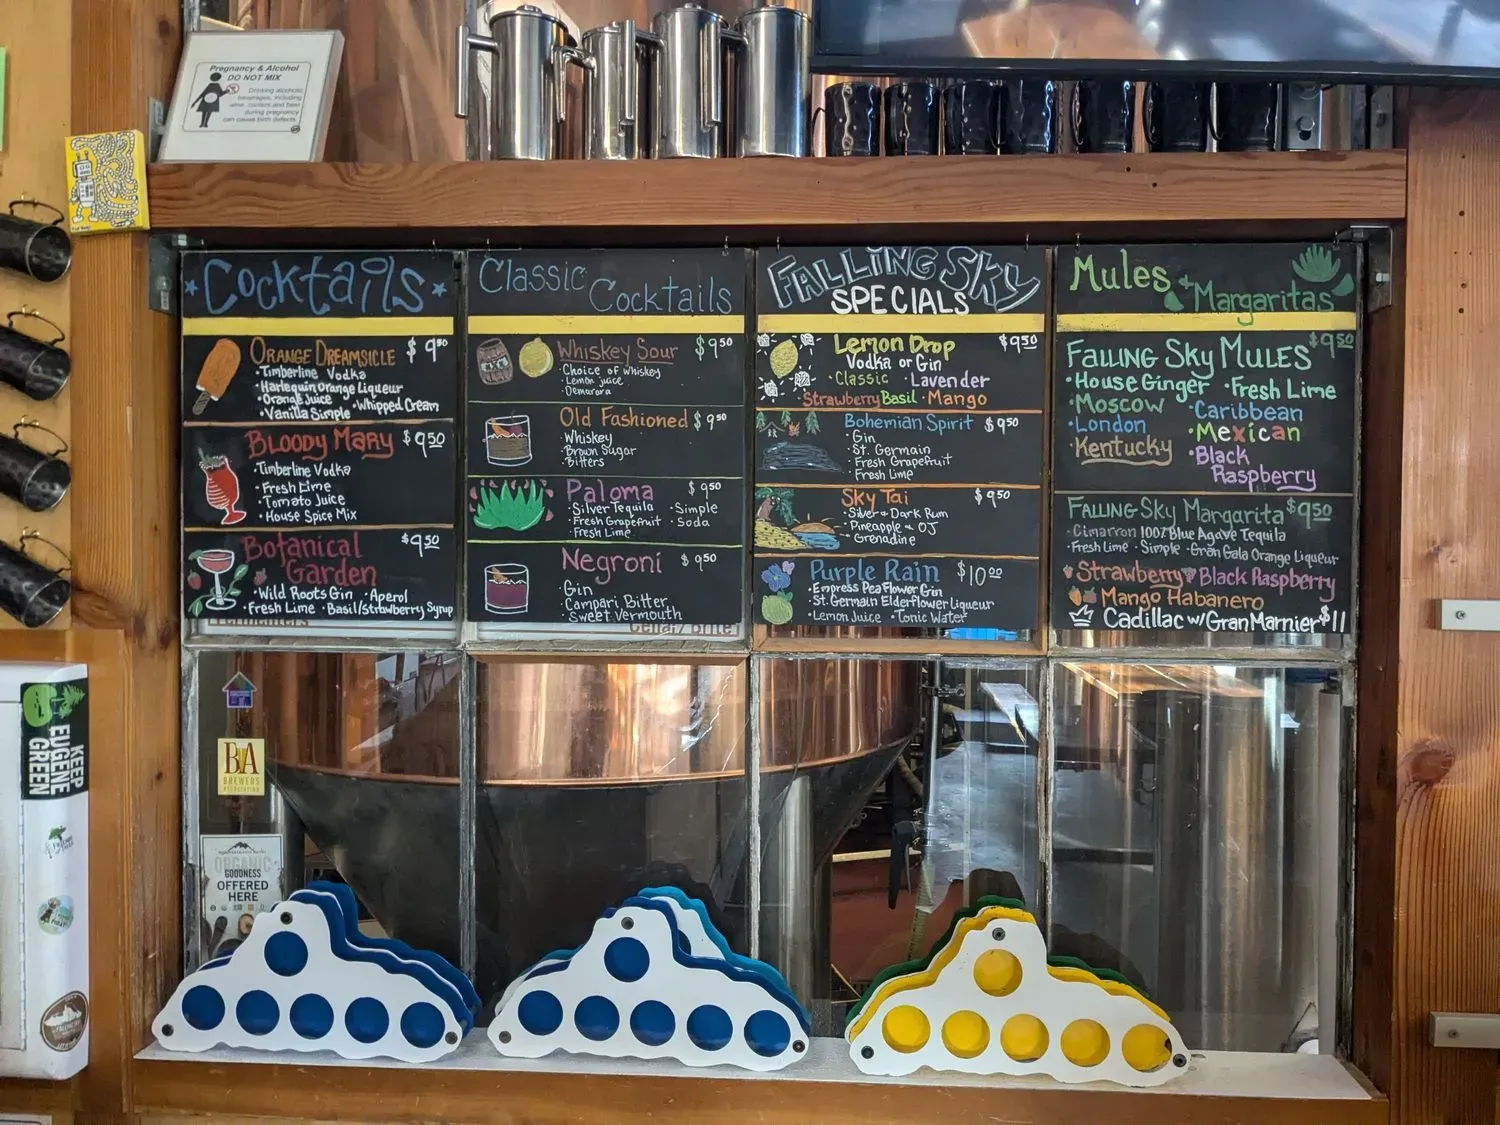 Pregnancy & Alcohol
DO NOT MIX
Drinking alcoholic
beverages, including
wine, coolers and beer
during pregnancy
can cause birth defects.
Cocktails
Orange Dreamsicle $9.50
• Timberline Vodka
• Harlequin Orange Liqueur
• Orange Juice
• Vanilla Simple • Whipped Cream
Bloody Mary $9.50
• Timberline Vodka
• Fresh Lime
• Tomato Juice
• House Spice Mix
Botanical $9.50
Garden
• Wild Roots Gin • Aperol
• Fresh Lime • Basil/Strawberry Syrup
Classic
Cocktails
Whiskey Sour $9.50
• Choice of whiskey
• Lemon juice
• Demarara
Old Fashioned $9.50
• Whiskey
• Brown Sugar
• Bitters
Paloma $9.50
• Silver Tequila • Simple
• Fresh Grapefruit • Soda
• Fresh Lime
Negroni $9.50
• Gin
• Campari Bitter
• Sweet Vermouth
FALLING SKY
SPECIALS
Lemon Drop $9.50
Vodka or Gin
• Classic • Lavender
• Strawberry Basil • Mango
Bohemian Spirit $9.50
• Gin
• St. Germain
• Fresh Grapefruit
• Fresh Lime
Sky Tai $9.50
• Silver & Dark Rum
• Pineapple & OJ
• Grenadine
Purple Rain $10.00
• Empress Pea Flower Gin
• St. Germain Elderflower Liqueur
• Lemon Juice • Tonic Water
Mules
& Margaritas
$9.50
Falling Sky Mules
• House Ginger • Fresh Lime
• Moscow • Caribbean
• London • Mexican
• Kentucky • Black
Raspberry
Falling Sky Margarita $9.50
• Cimarron 100% Blue Agave Tequila
• Fresh Lime • Simple • Gran Gala Orange Liqueur
Strawberry Black Raspberry
Mango Habanero
Cadillac w/ Gran Marnier $11
Fermenters
Cellar/Brite
KEEP
EUGENE
GREEN
BA
BREWERS
ASSOCIATION
ORGANIC
GOODNESS
OFFERED
HERE